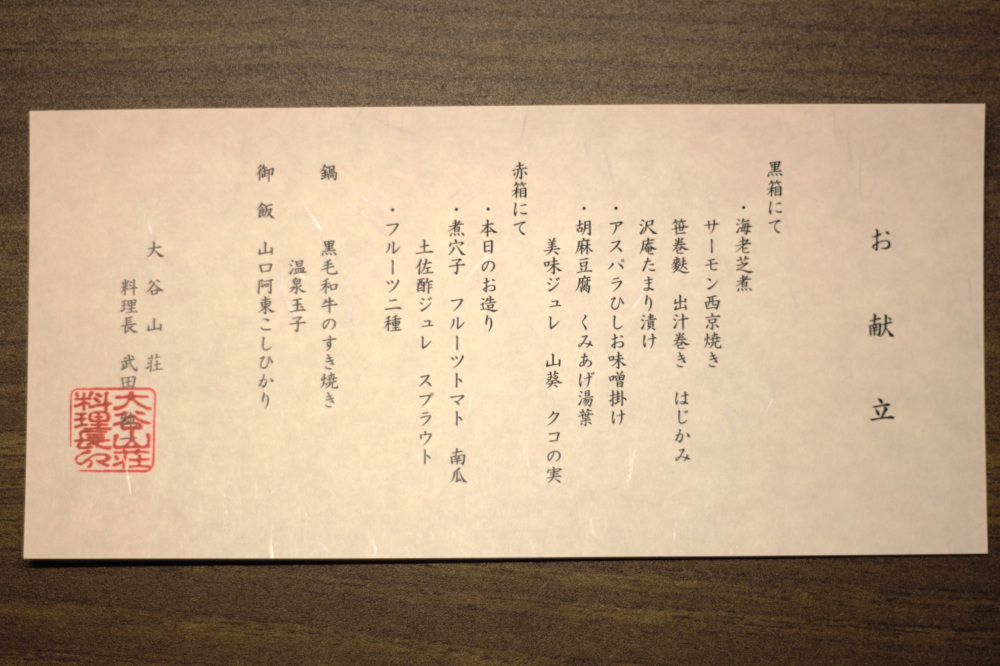 お献立
黒箱にて
・海老芝煮
サーモン西京焼き
笹巻麩　出汁巻き　はじかみ
沢庵たまり漬け
・アスパラひしお味噌掛け
・胡麻豆腐　くみあげ湯葉
美味ジュレ　山葵　クコの実
赤箱にて
・本日のお造り
・煮穴子　フルーツトマト　南瓜
土佐酢ジュレ　スプラウト
・フルーツ二種
鍋　黒毛和牛のすき焼き
温泉玉子
御飯　山口阿東こしひかり
大谷山荘
料理長　武田
大谷山荘
料理長